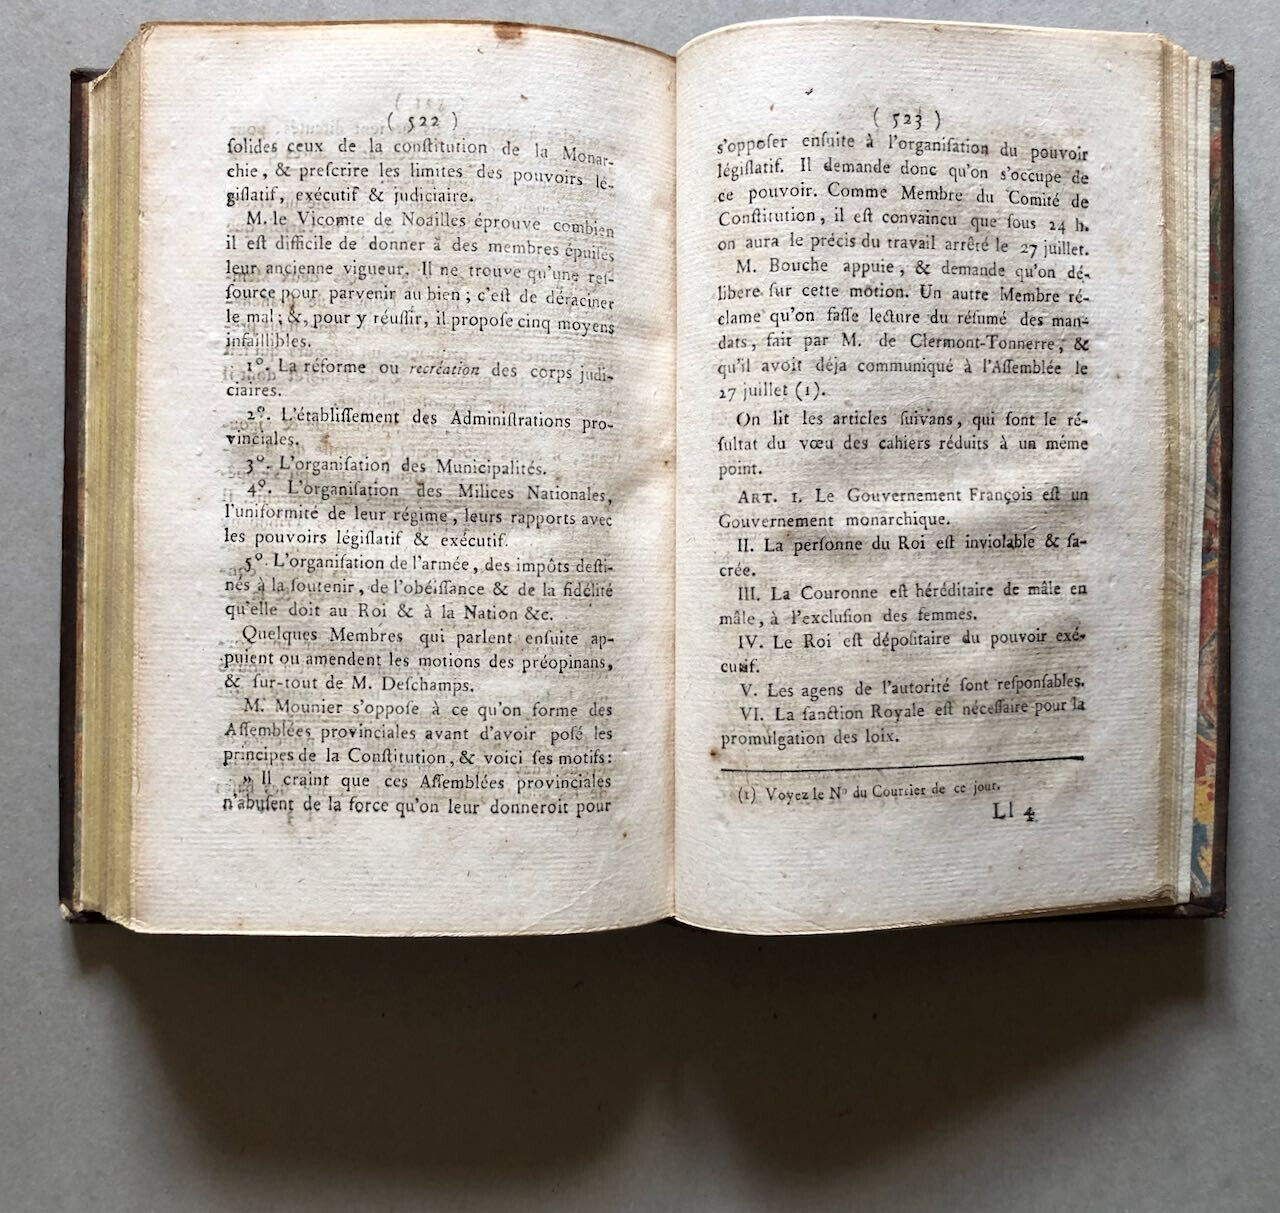 ( 522 )
ſolides ceux de la conſtitution de la Monar-
chie, & preſcrire les limites des pouvoirs lé-
giſlatif, exécutif & judiciaire.
M. le Vicomte de Noailles éprouve combien
il eſt difficile de donner à des membres épuiſés
leur ancienne vigueur. Il ne trouve qu'une reſ-
ſource pour parvenir au bien ; c'eſt de déraciner
le mal ; &, pour y réuſſir, il propoſe cinq moyens
infaillibles.
1°. La réforme ou recréation des corps judi-
ciaires.
2°. L'établiſſement des Adminiſtrations pro-
vinciales.
3°. L'organiſation des Municipalités.
4°. L'organiſation des Milices Nationales,
l'uniformité de leur régime, leurs rapports avec
les pouvoirs légiſlatif & exécutif.
5°. L'organiſation de l'armée, des impôts deſti-
nés à la ſoutenir, de l'obéiſſance & de la fidélité
qu'elle doit au Roi & à la Nation &c.
Quelques Membres qui parlent enſuite ap-
puient ou amendent les motions des préopinans,
& ſur-tout de M. Deſchamps.
M. Mounier s'oppoſe à ce qu'on forme des
Aſſemblées provinciales avant d'avoir poſé les
principes de la Conſtitution, & voici ſes motifs :
» Il craint que ces Aſſemblées provinciales
n'abuſent de la force qu'on leur donneroit pour
( 523 )
s'oppoſer enſuite à l'organiſation du pouvoir
légiſlatif. Il demande donc qu'on s'occupe de
ce pouvoir. Comme Membre du Comité de
Conſtitution, il eſt convaincu que ſous 24 h.
on aura le précis du travail arrêté le 27 juillet.
M. Bouche appuie, & demande qu'on dé-
libere ſur cette motion. Un autre Membre ré-
clame qu'on faſſe lecture du réſumé des man-
dats, fait par M. de Clermont-Tonnerre, &
qu'il avoit déja communiqué à l'Aſſemblée le
27 juillet (1).
On lit les articles ſuivans, qui ſont le ré-
ſultat du vœu des cahiers réduits à un même
point.
ART. I. Le Gouvernement François eſt un
Gouvernement monarchique.
II. La perſonne du Roi eſt inviolable & ſa-
crée.
III. La Couronne eſt héréditaire de mâle en
mâle, à l'excluſion des femmes.
IV. Le Roi eſt dépoſitaire du pouvoir exé-
cutif.
V. Les agens de l'autorité ſont reſponſables.
VI. La ſanction Royale eſt néceſſaire pour la
promulgation des loix.
(1) Voyez le N° du Courrier de ce jour.
Ll 4